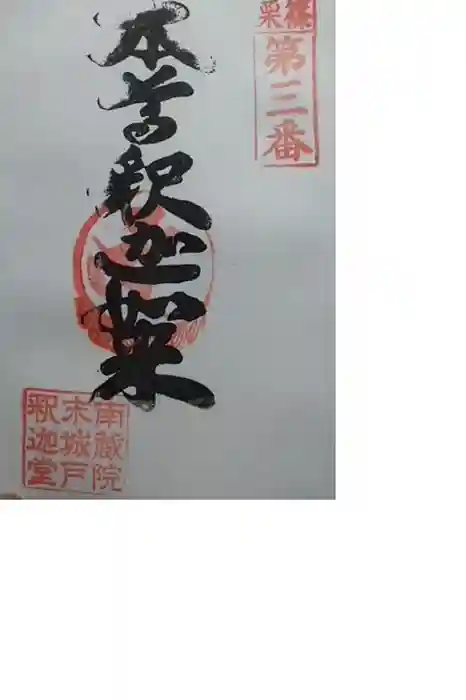 篠栗
第三番
本尊釈迦如来
南蔵院
末城戸
釈迦堂